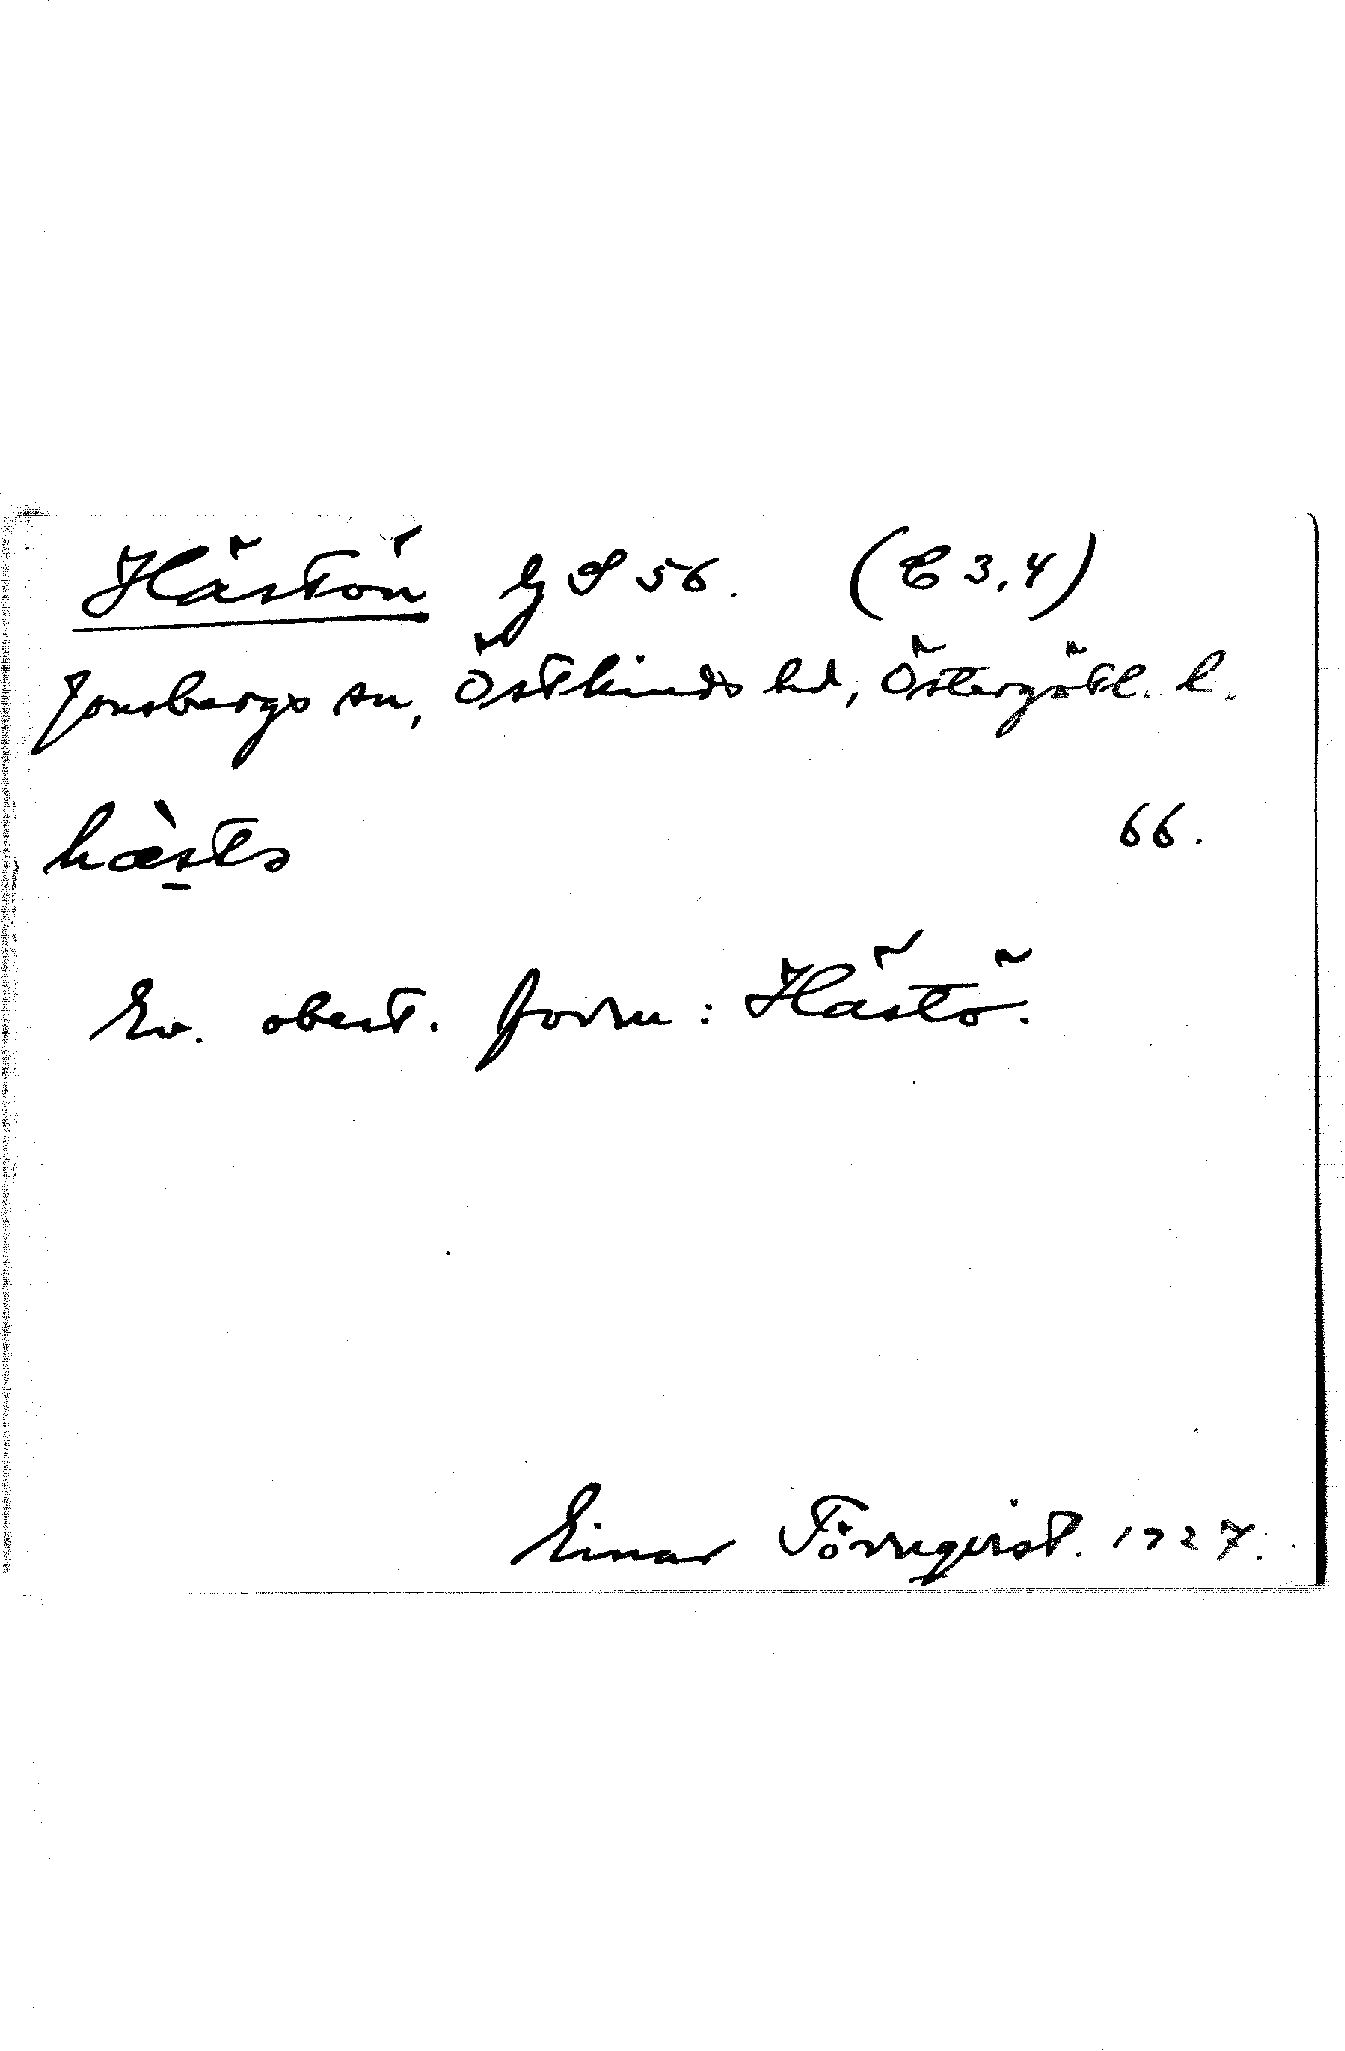 Hästön G S 56. (C 3,4)
Jonsbergs sn, Östkinds hd, Östergötl. l.
hæ̀sts
66.
Ev. obest. form: Hästö.
Einar Törnqvist. 1927.